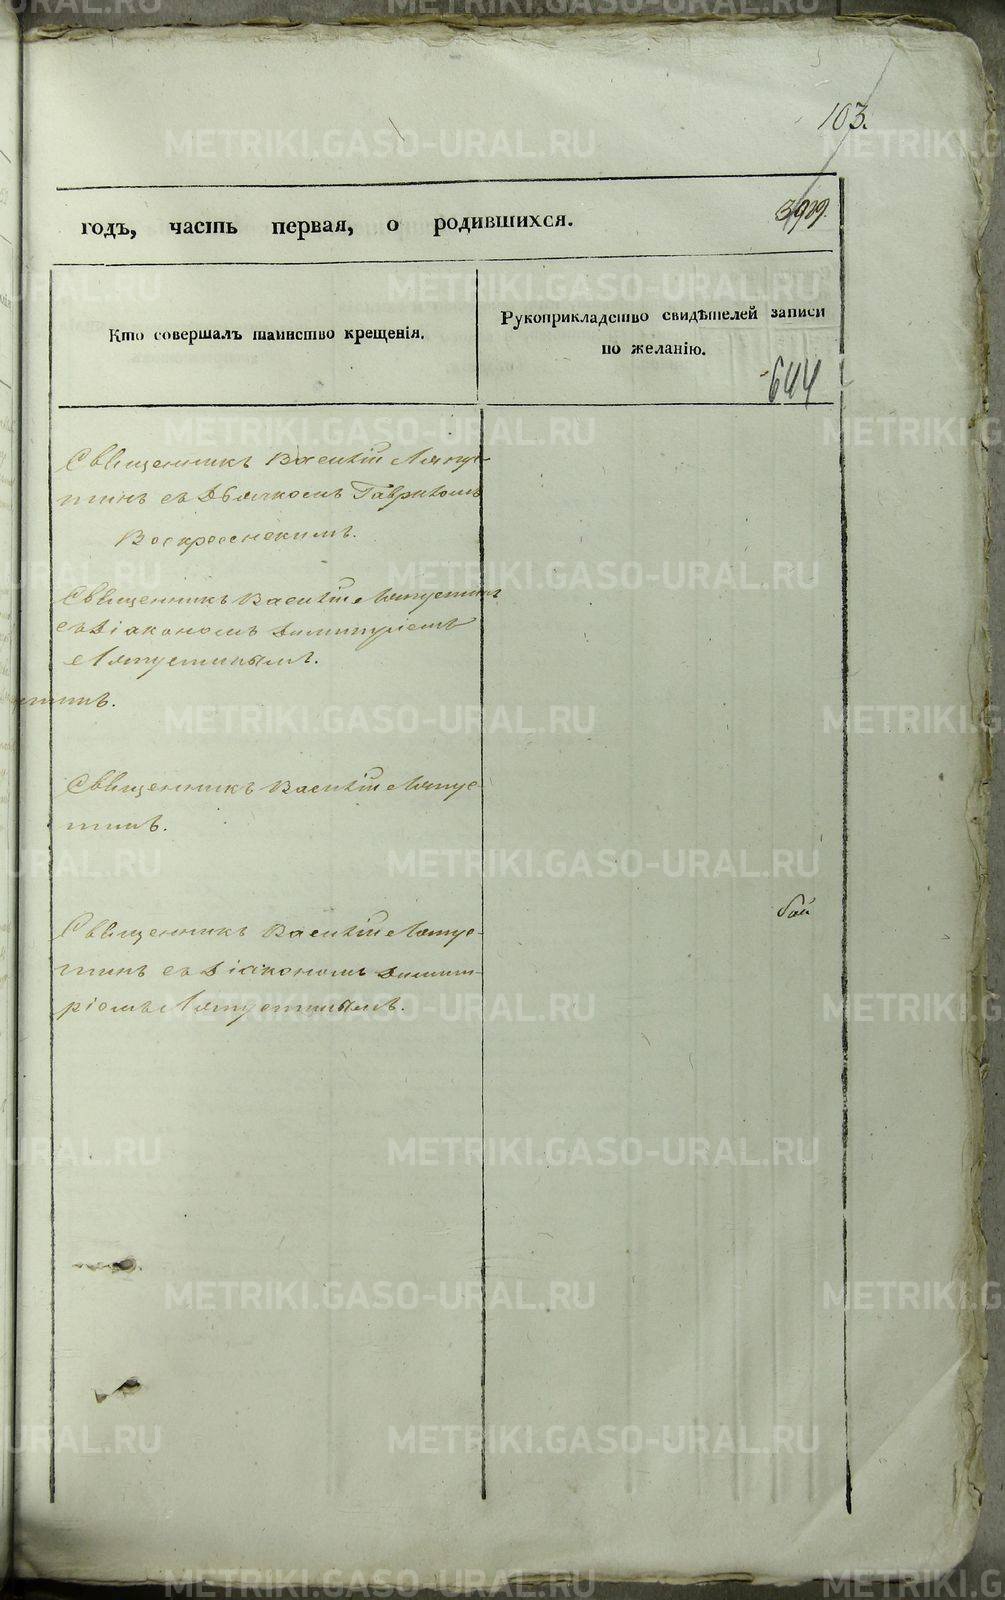 103.
годъ, часть первая, о родившихся.
3909.
Кто совершалъ таинство крещенія.
Рукоприкладство свидѣтелей записи
по желанію.
644
Священникъ Василій Ляпус-
тинъ съ Дьячкомъ Гавриломъ
Воскресенскимъ.
Священникъ Василій Ляпустинъ
съ Діакономъ Димитріемъ
Ляпустинымъ.
Священникъ Василій Ляпус-
тинъ.
Священникъ Василій Ляпус-
тинъ съ Діакономъ Димит-
ріемъ Ляпустинымъ.
METRIKI.GASO-URAL.RU